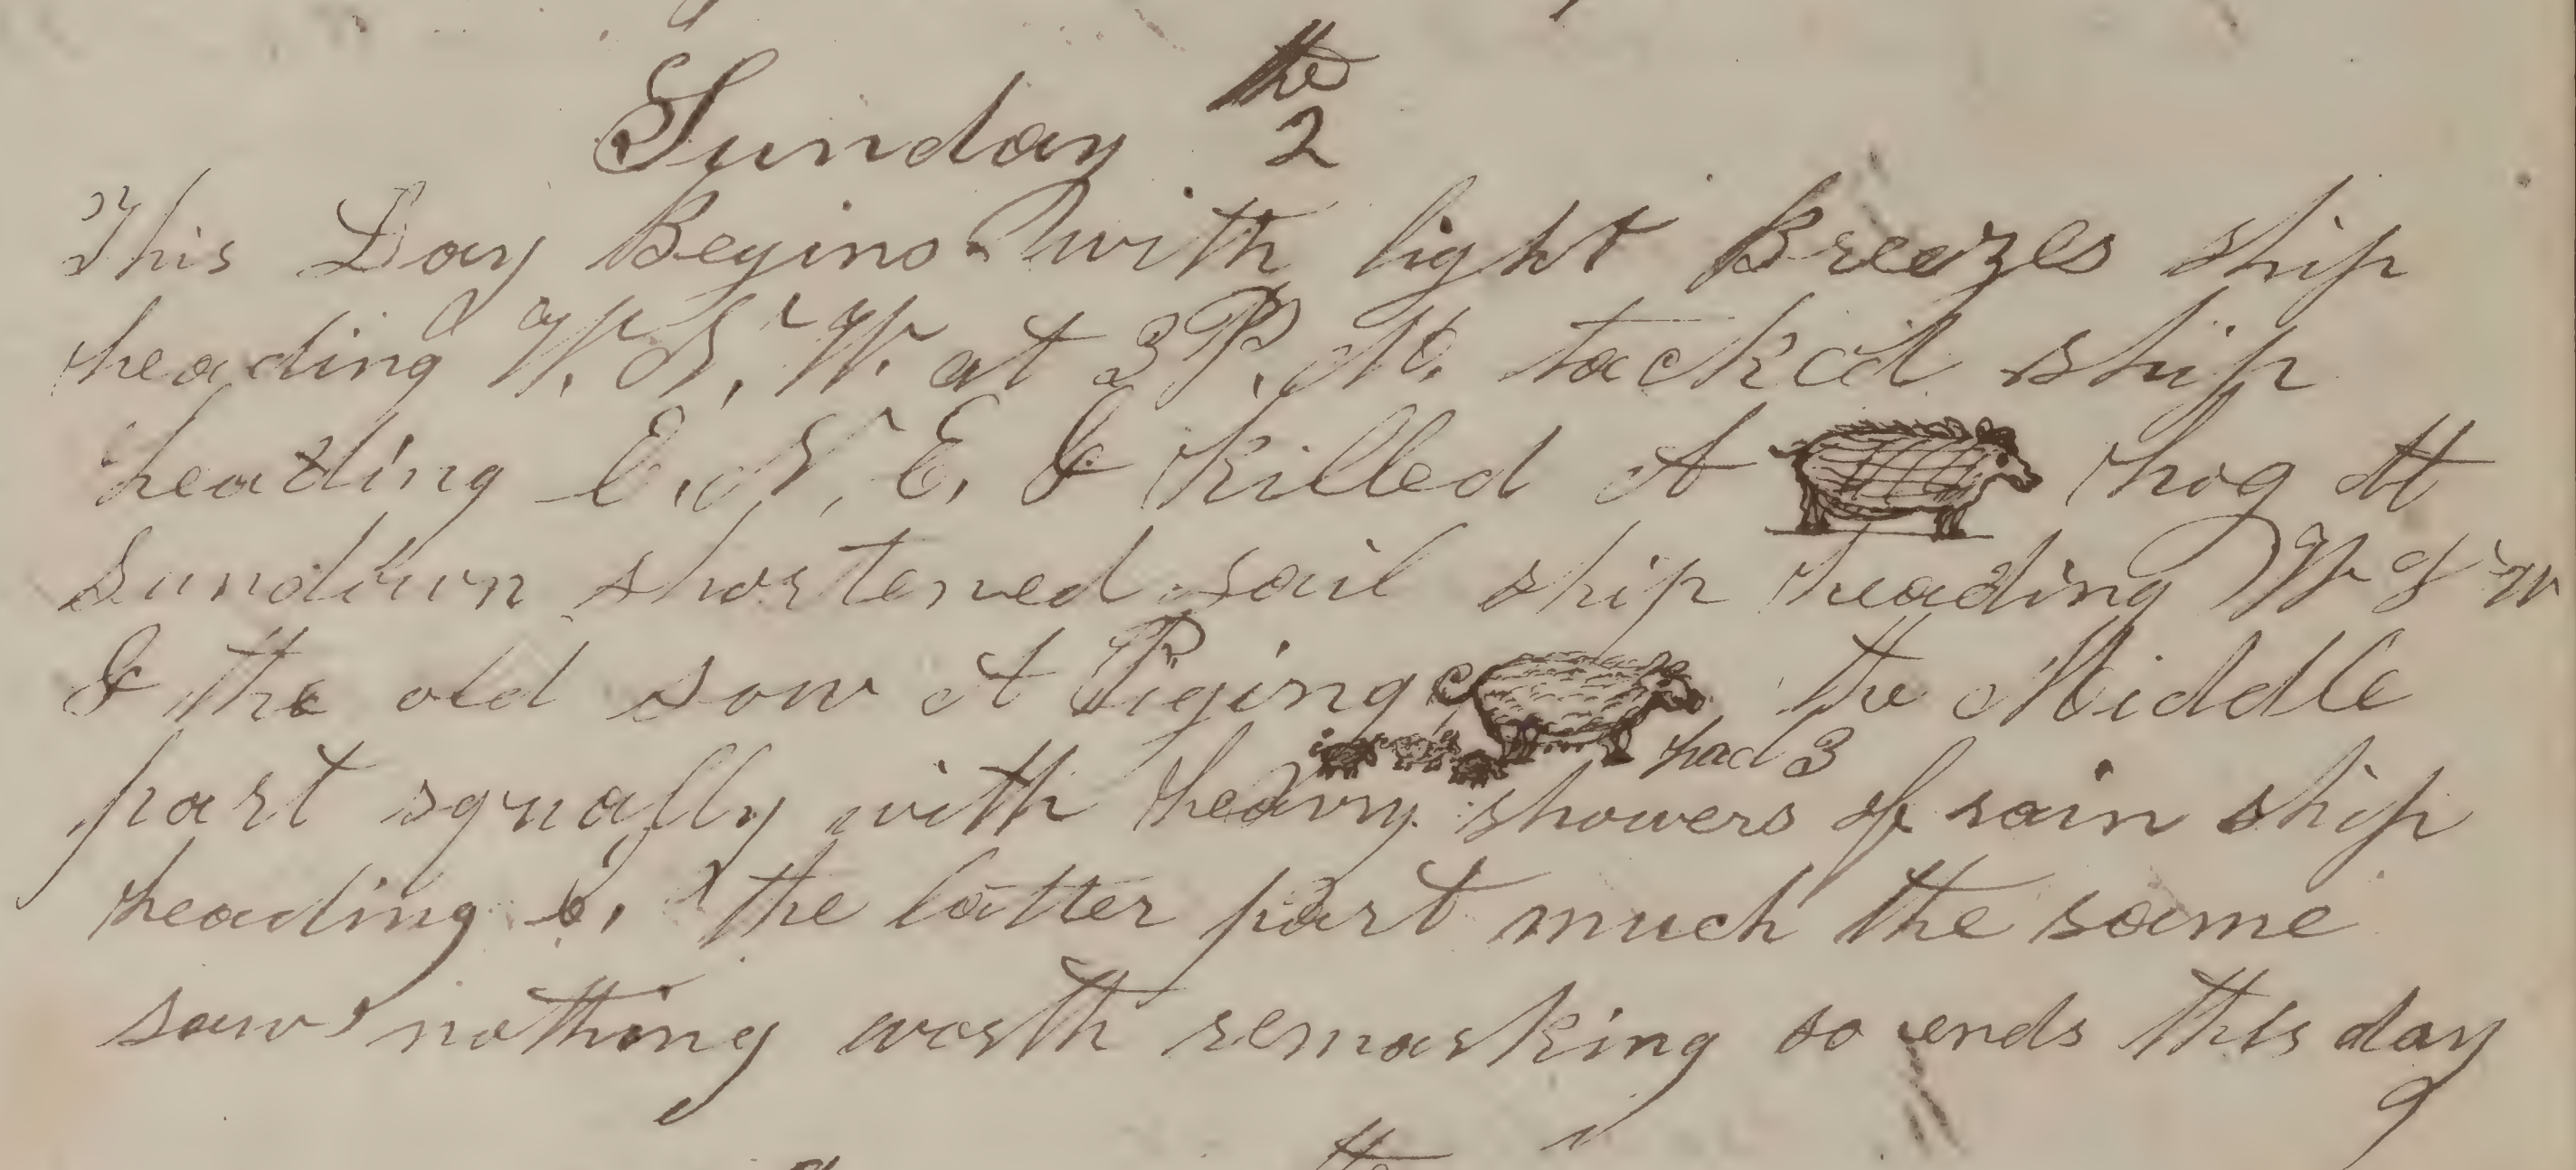 Sunday the 2
This Day Begins with light Breezes ship
heading W. S. W. at 3 P. M. tackcd ship
heading E. N. E. & killed A hog At
sundown shortened sail ship heading W S W
& the old sow A Piging the Middle
had 3
part squally with heavy showers of rain ship
heading E. the latter part much the same
saw nothing worth remarking so ends this day